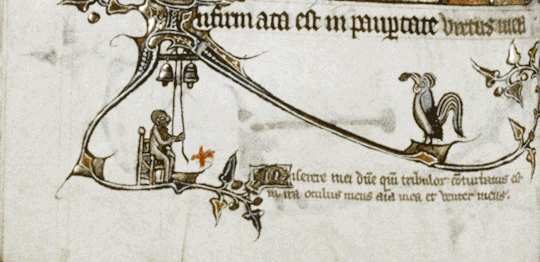 ntirm ata est in paup̱tate virtus mea
Miserere mei dn̄e qm̄ tribulor cōturbatus est
in ira oculus meus aīa mea et venter meus.